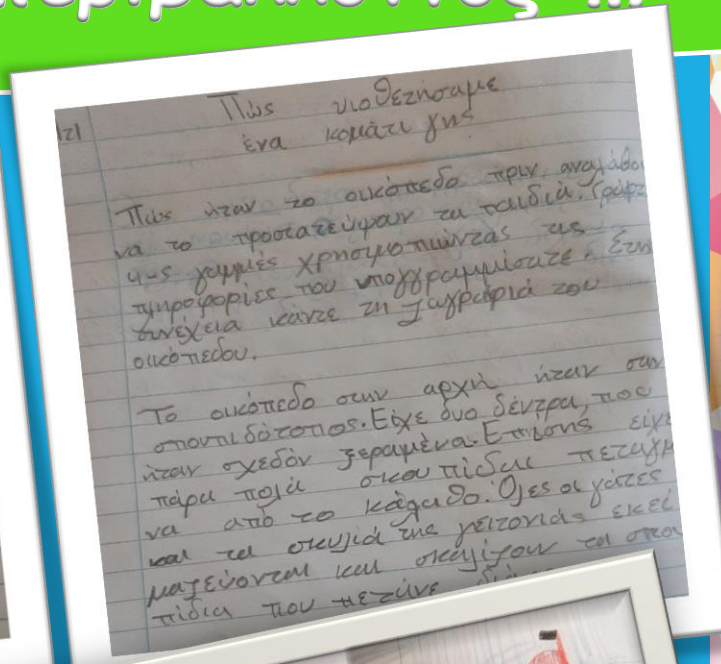 Πώς υιοθετήσαμε
ένα κομάτι γης
Πώς ήταν το οικόπεδο πριν αναλάβου
να το προστατεύψουν τα παιδιά. Γράψτε
4-5 γαμμές χρησιμοποιώντας τις
πληροφορίες που υπογγραμμίσατε. Στη
συνέχεια κάντε τη ζωγραφιά του
οικόπεδου.
Το οικόπεδο στην αρχή ήταν σαν
σπουπιδότοπος. Είχε δυο δέντρα, που
ήταν σχεδόν ξεραμένα. Επισης είχε
πάρα πολά σκουπίδια πεταγμ
να από το κάλαθο. Όλες οι γάτες
και τα σκυλιά της γειτονιάς εκεί
μαζεύονται και σκαλίζουν τα σκου
πίδια που πετάνε